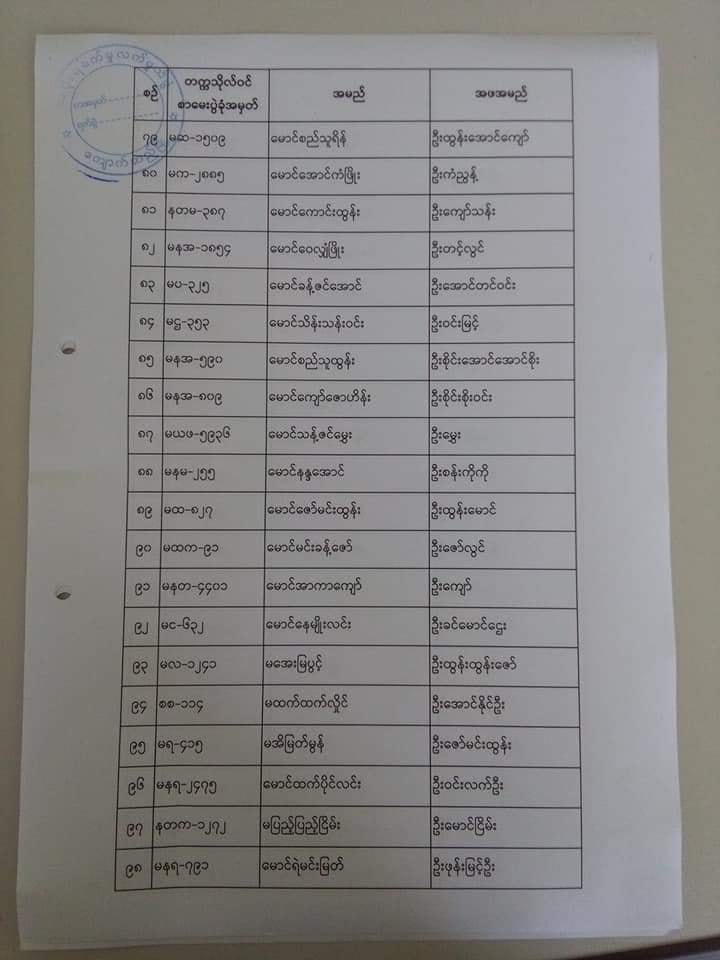 စဉ် တက္ကသိုလ်ဝင် စာမေးပွဲခုံအမှတ် အမည် အဖအမည်
၇၉ မဆ-၁၅၀၉ မောင်စည်သူရိန် ဦးထွန်းအောင်ကျော်
၈၀ မက-၂၈၈၅ မောင်အောင်ကံဖြိုး ဦးကံညွန့်
၈၁ နတမ-၃၈၇ မောင်ကောင်းထွန်း ဦးကျော်သန်း
၈၂ မနအ-၁၈၅၄ မောင်ဝေလျှံဖြိုး ဦးတင့်လွင်
၈၃ မပ-၃၂၅ မောင်ခန့်ဇင်အောင် ဦးအောင်တင်ဝင်း
၈၄ မဌ-၃၅၃ မောင်သိန်းသန်းဝင်း ဦးဝင်းမြင့်
၈၅ မနအ-၅၉၀ မောင်စည်သူထွန်း ဦးစိုင်းအောင်အောင်စိုး
၈၆ မနအ-၈၀၉ မောင်ကျော်ဇောဟိန်း ဦးစိုင်းစိုးဝင်း
၈၇ မယဖ-၅၉၃၆ မောင်သန့်ဇင်မွှေး ဦးမွှေး
၈၈ မနမ-၂၅၅ မောင်နန္ဒအောင် ဦးစန်းကိုကို
၈၉ မထ-၈၂၇ မောင်ဇော်မင်းထွန်း ဦးထွန်းမောင်
၉၀ မထက-၉၁ မောင်မင်းခန့်ဇော် ဦးဇော်လွင်
၉၁ မနတ-၄၄၀၁ မောင်အာကာကျော် ဦးကျော်
၉၂ မင-၆၃၂ မောင်နေမျိုးလင်း ဦးခင်မောင်ဌေး
၉၃ မလ-၁၂၄၁ မအေးမြပွင့် ဦးထွန်းထွန်းဇော်
၉၄ စစ-၁၁၄ မထက်ထက်လှိုင် ဦးအောင်နိုင်ဦး
၉၅ မရ-၄၁၅ မအိမြတ်မွန် ဦးဇော်မင်းထွန်း
၉၆ မနရ-၂၄၇၅ မောင်ထက်ပိုင်လင်း ဦးဝင်းလက်ဦး
၉၇ နတက-၁၂၇၂ မပြည့်ပြည့်ငြိမ်း ဦးမောင်ငြိမ်း
၉၈ မနရ-၇၉၁ မောင်ရဲမင်းမြတ် ဦးဖုန်းမြင့်ဦး